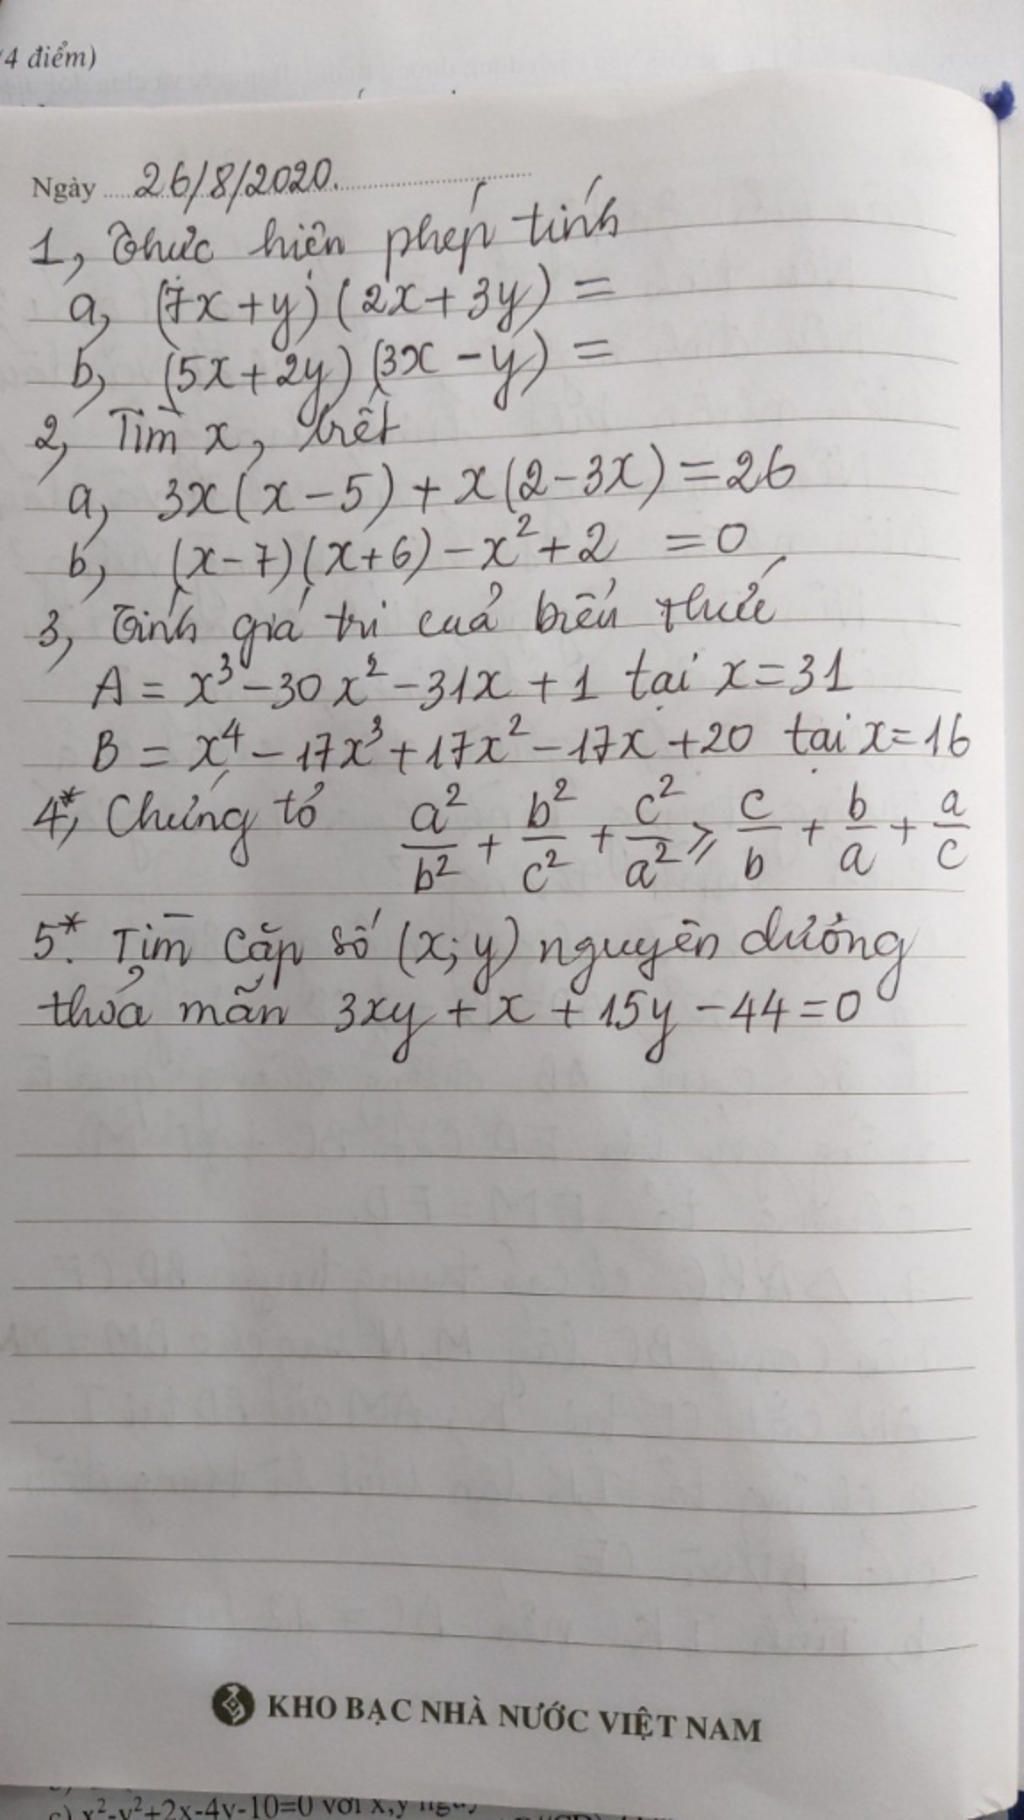 4 điểm)
Ngày 26/8/2020.
1, Thực hiện phép tính
a, (7x+y)(2x+3y) =
b, (5x+2y)(3x-y) =
2, Tìm x, biết
a, 3x(x-5)+x(2-3x)=26
b, (x-7)(x+6)-x²+2 =0
3, Tính giá trị của biểu thức
A = x³-30x²-31x+1 tại x=31
B = x⁴-17x³+17x²-17x+20 tại x=16
4*, Chứng tỏ a²/b² + b²/c² + c²/a² ⩾ c/b + b/a + a/c
5*. Tìm cặp số (x;y) nguyên dương
thỏa mãn 3xy+x+15y-44=0
KHO BẠC NHÀ NƯỚC VIỆT NAM
c) x²-y²+2x-4y-10=0 với x,y